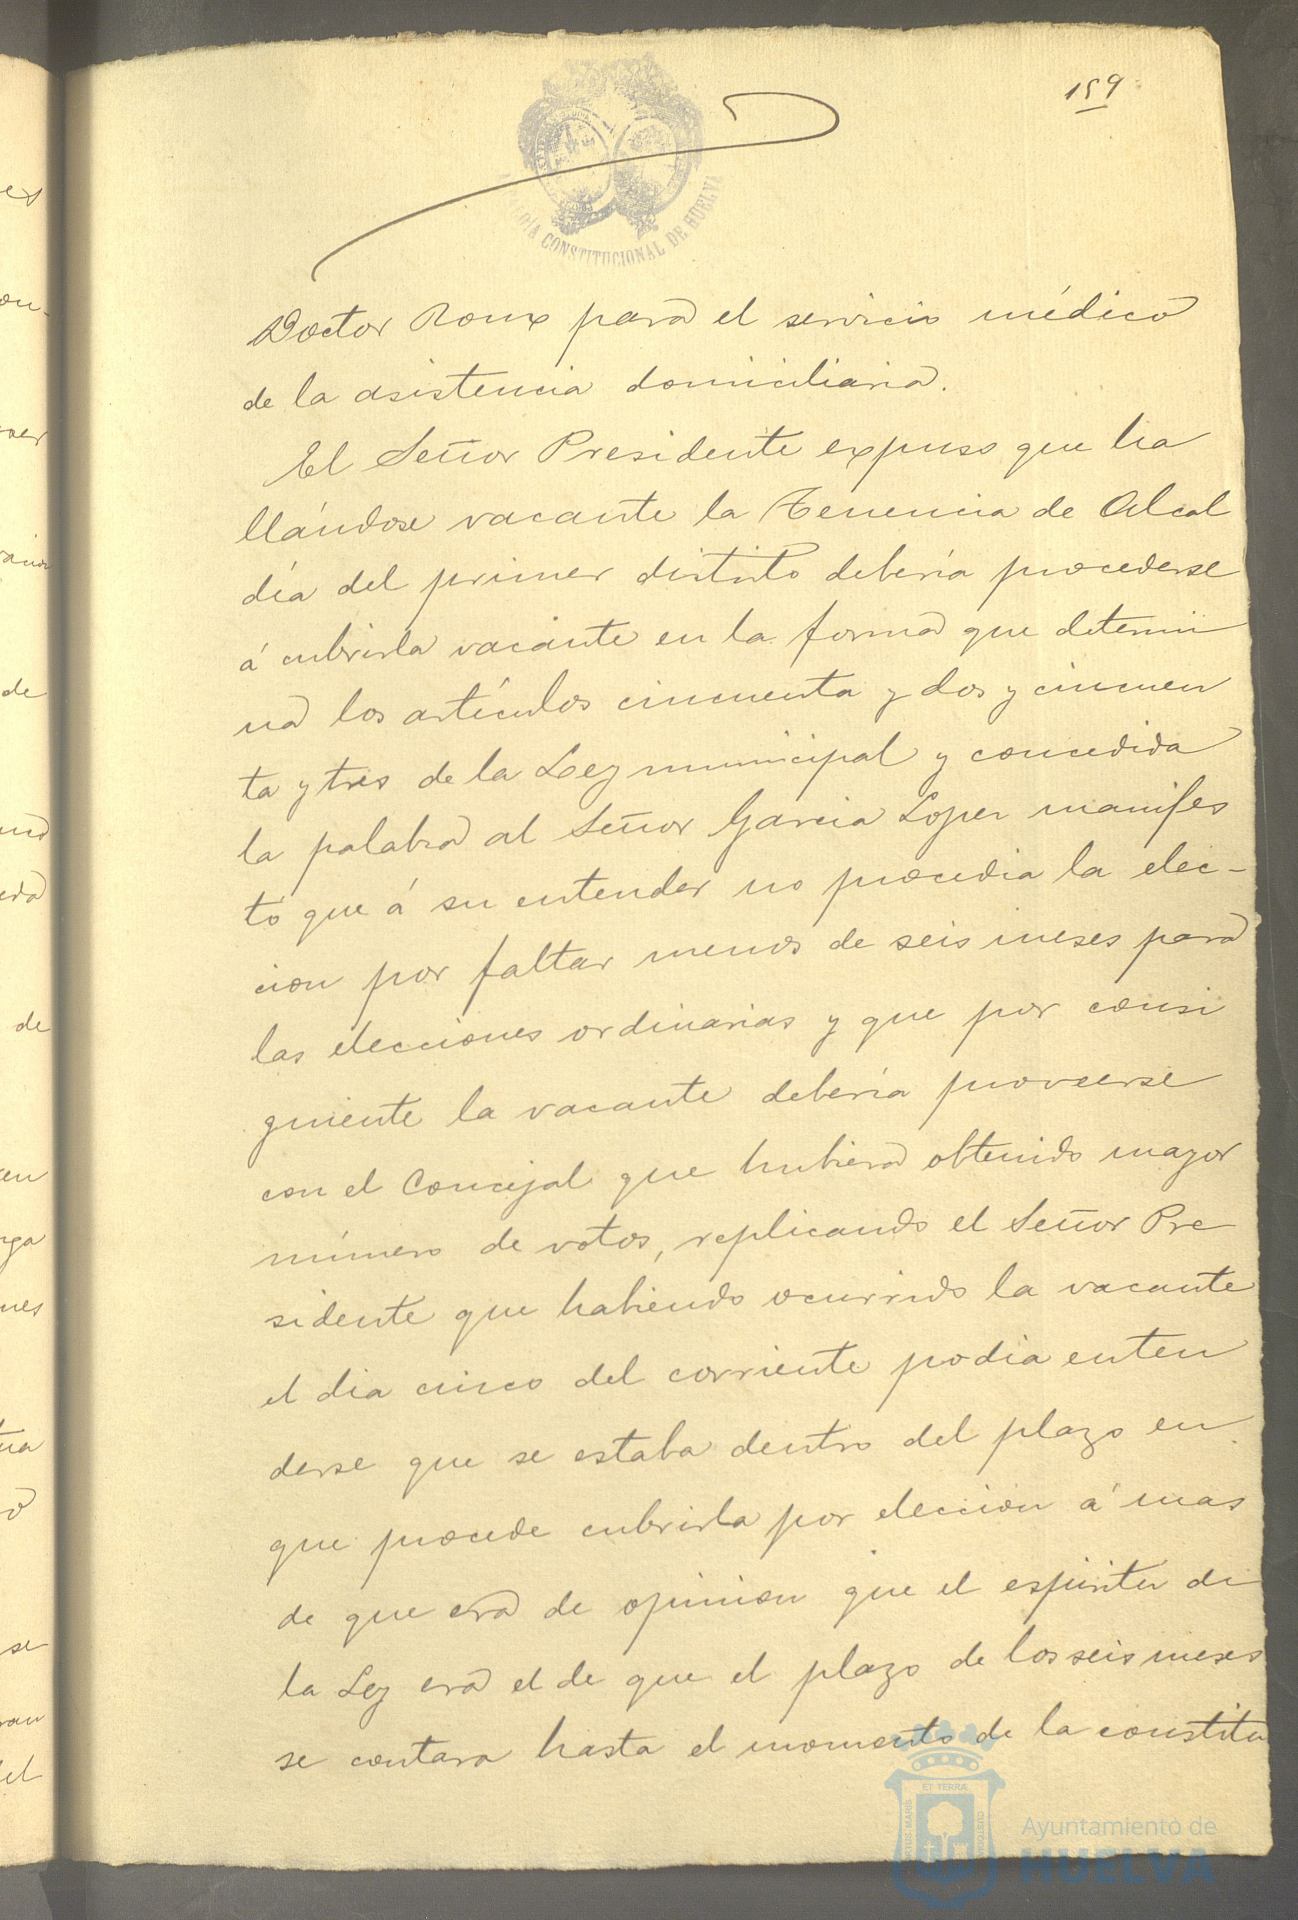 159
ALCALDÍA CONSTITUCIONAL DE HUELVA
Doctor Roux para el servicio médico
de la asistencia domiciliaria.
El Señor Presidente expuso que ha
llándose vacante la Tenencia de Alcal
día del primer distrito debería procederse
á cubrirla vacante en la forma que determi
na los artículos cincuenta y dos y cincuen
ta y tres de la Ley municipal y concedida
la palabra al Señor Garcia Lopez manifes
tó que á su entender no procedia la elec-
cion por faltar menos de seis meses para
las elecciones ordinarias y que por consi
guiente la vacante debería proveerse
con el Concejal que hubiera obtenido mayor
número de votos, replicando el Señor Pre
sidente que habiendo ocurrido la vacante
el dia cinco del corriente podia enten
derse que se estaba dentro del plazo en
que procede cubrirla por eleccion á mas
de que era de opinion que el espiritu de
la Ley era el de que el plazo de los seis meses
se contara hasta el momento de la constitu
ET TERRÆ
Ayuntamiento de
HUELVA